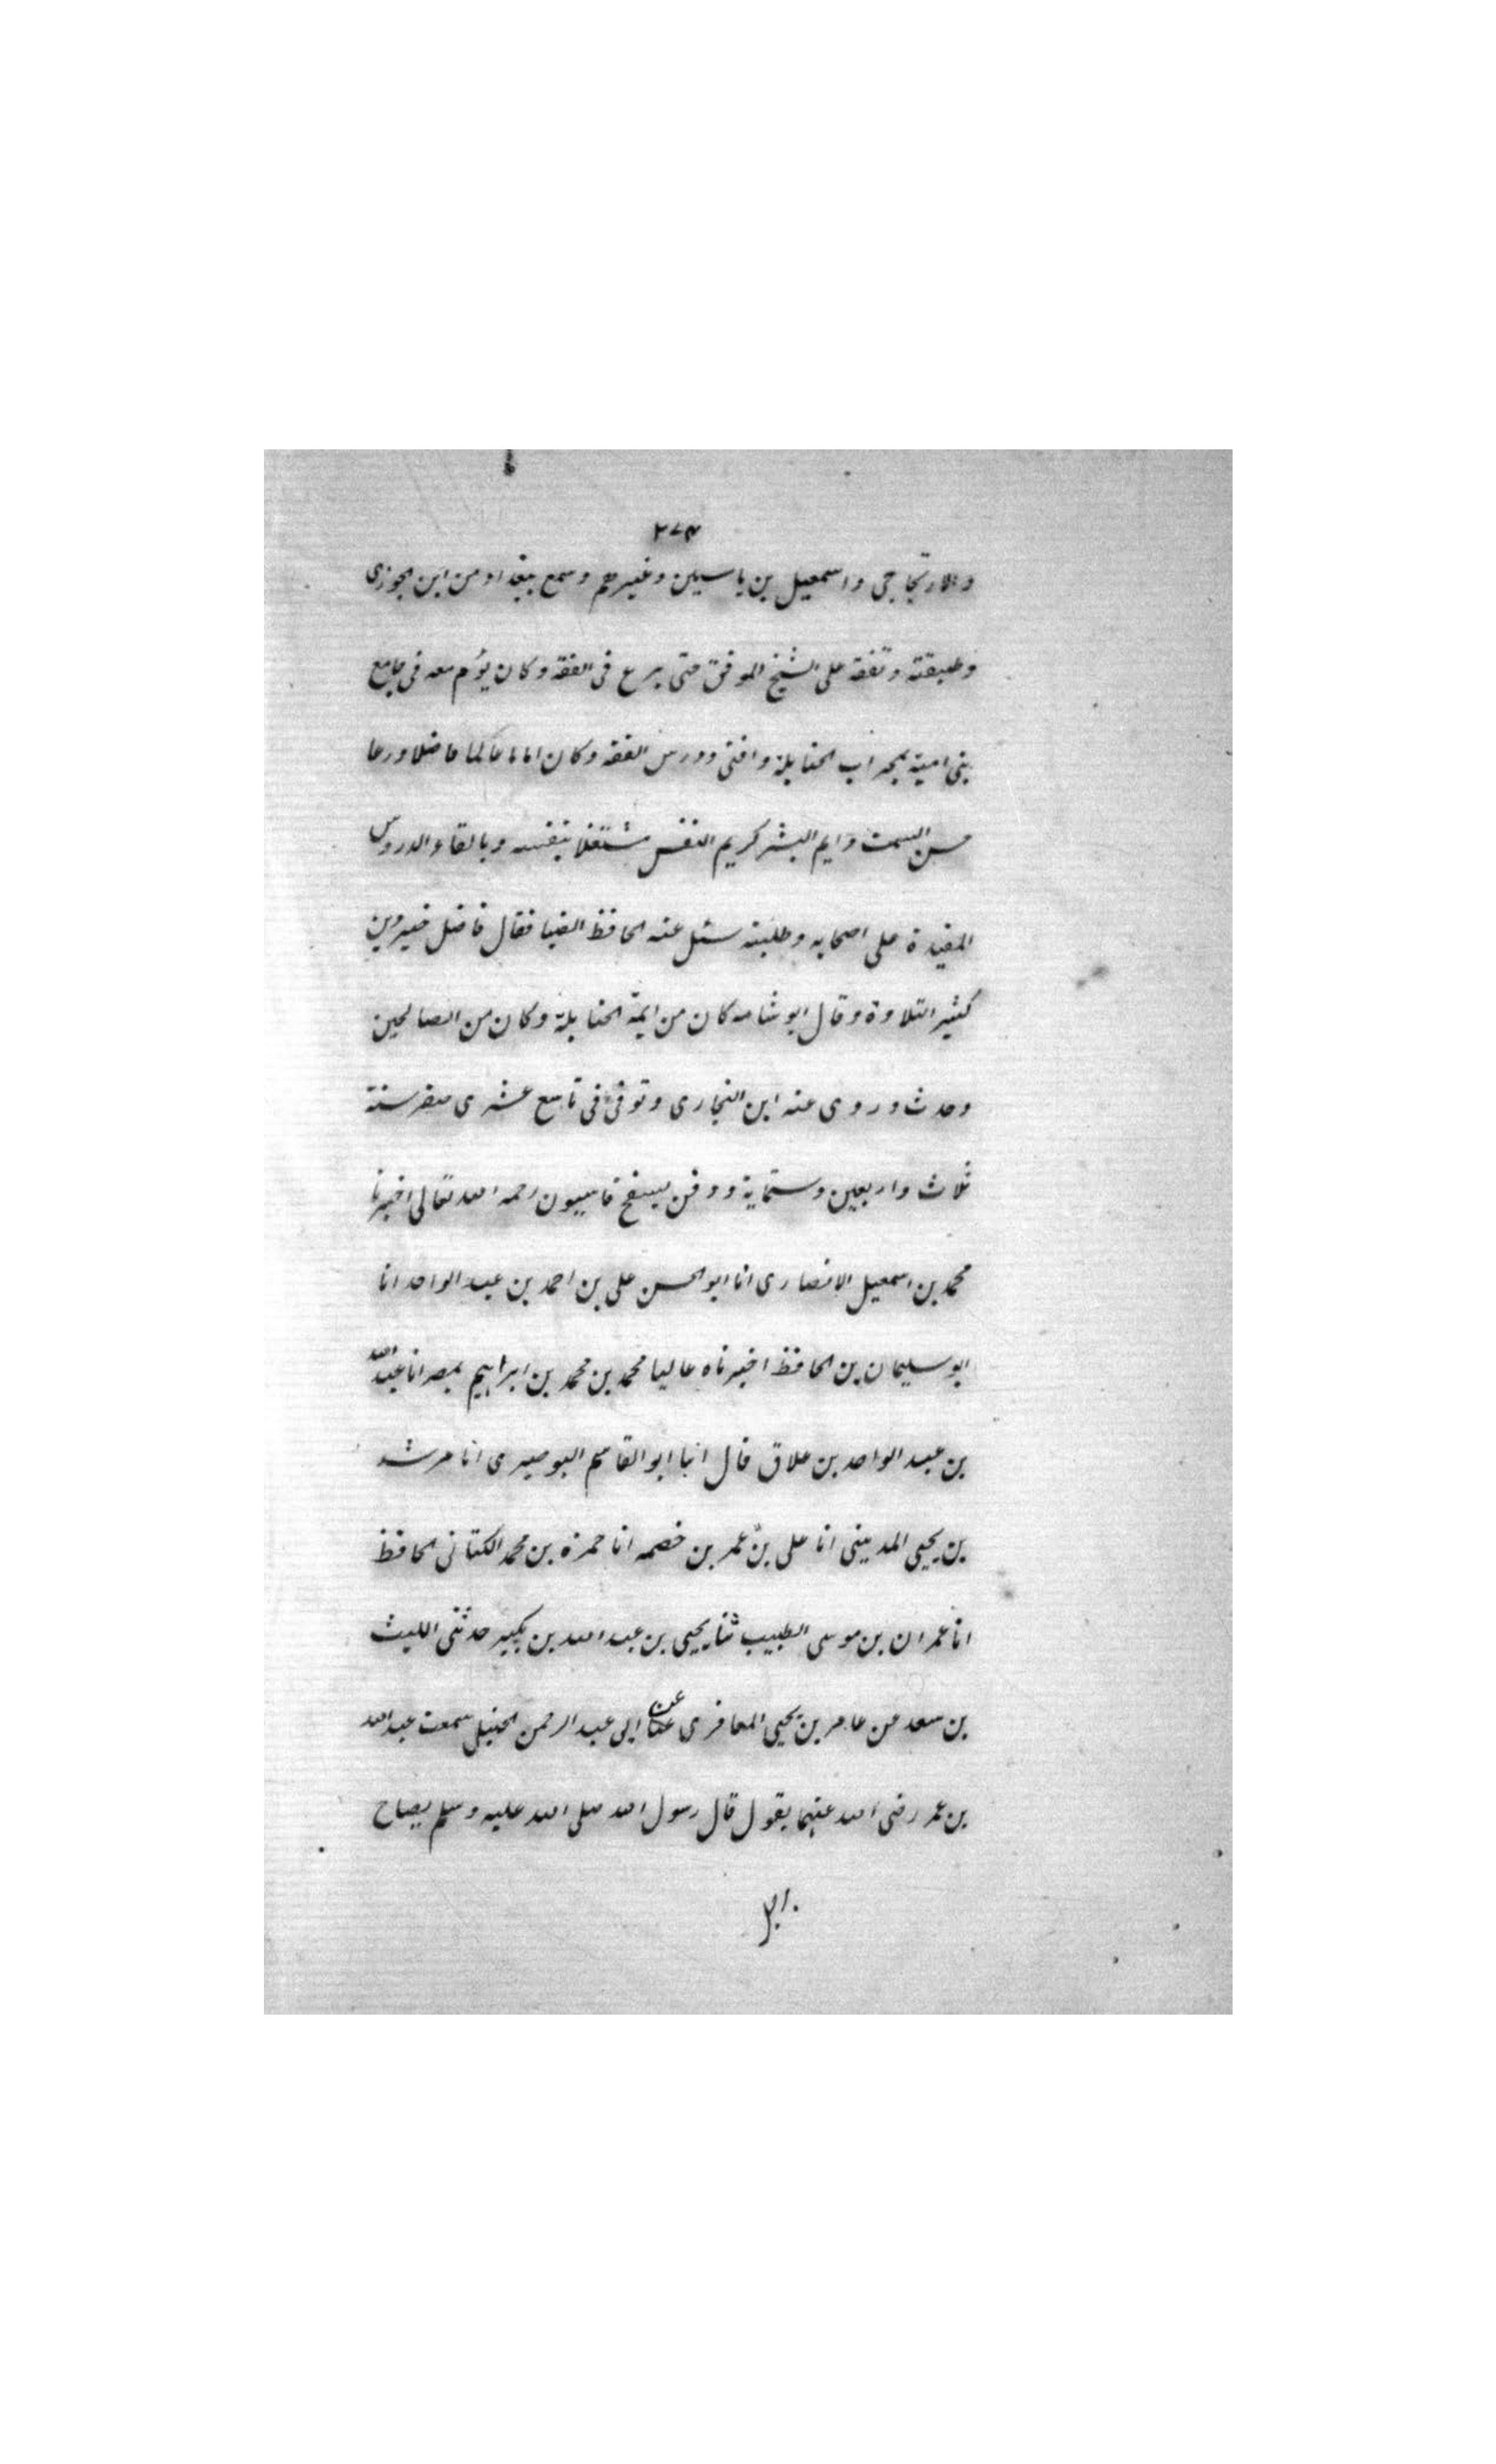 ٢٧٤
والارتجاجى واسمعيل بن ياسيلن وغيرهم وسمع ببغداد من ابن الجوزى
وطبقته وتفقه على الشيخ الموفق حتى برع فى الفقه وكان يؤم معه فى جامع
بنى امية بمحراب الحنابلة وافتى ودرس الفقه وكان اماما عالما فاضلا ورعا
حسن السمت دايم البشر كريم النفس مشتغلا بنفسه وبالقاء الدروس
المفيدة على اصحابه وطلبته سئل عنه الحافظ الضيا فقال فاضل خير دين
كثير التلاوة وقال ابو شامه كان من ايمّة الحنابلة وكان من الصالحين
وحدث وروى عنه ابن النجارى وتوفى فى تاسع عشرى صفر سنة
ثلاث واربعين وستماية ودفن بسفح قاسيون رحمه الله تعالى اخبرنا
محمد بن اسمعيل الانصارى انا ابو الحسن على بن احمد بن عبد الواحد انا
ابو سليمان بن الحافظ اخبرناه عاليا محمد بن محمد بن ابراهيم بمصر انا عبد الله
بن عبد الواحد بن علاق قال انبا ابو القاسم البوصيرى انا مرشد
بن يحيى المدينى انا على بن عمر بن خصمه انا حمزة بن محمد الكتانى الحافظ
انا عمران بن موسى الطبيب ثنا يحيى بن عبد الله بن بكير حدثنى الليث
بن سعد عن عامر بن يحيى المعافرى عن ابى عبد الرحمن الحنبلى سمعت عبد الله
بن عمر رضى الله عنهما يقول قال رسول الله صلى الله عليه وسلم يصاح
برجل